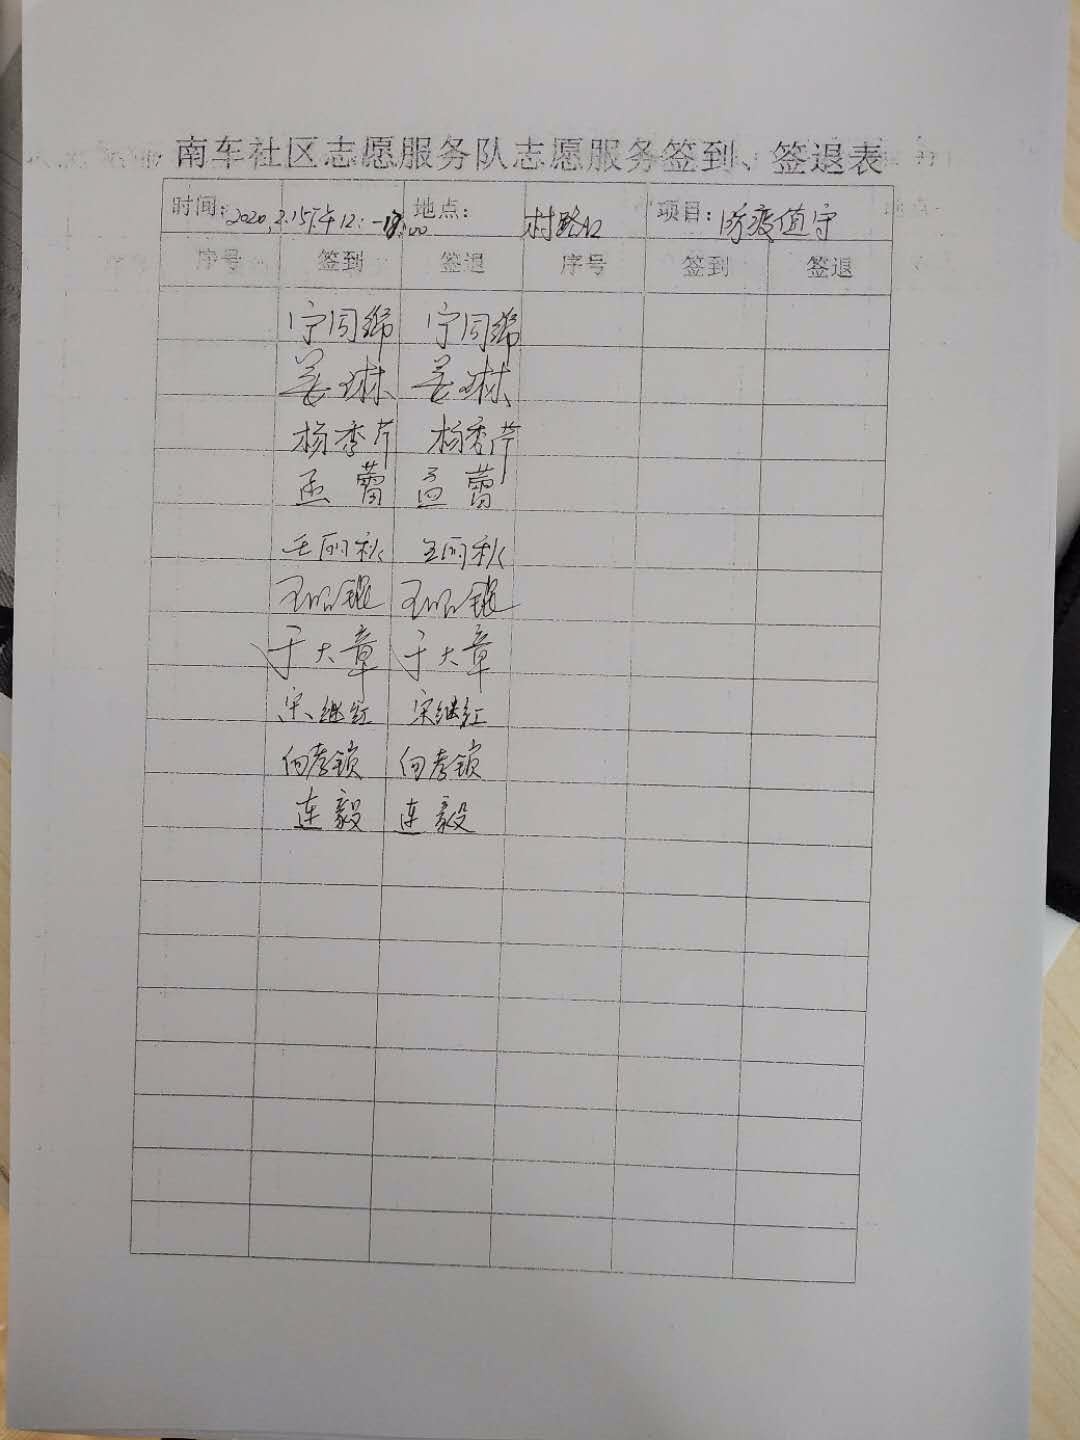 南车社区志愿服务队志愿服务签到、签退表
时间: 2020.3.15下午12: 地点: 村路口 项目: 防疫值守
序号 签到 签退 序号 签到 签退
姜琳 姜琳
杨秀芹 杨秀芹
孟蕾 孟蕾
王丽秋 王丽秋
于大章 于大章
宋继红 宋继红
向孝锁 向孝锁
连毅 连毅